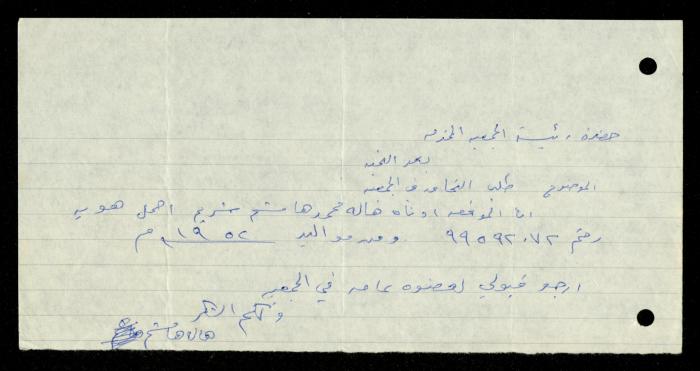 حضرة رئيسة الجمعيه المحترمه
بعد التحيه
الموضوع طلب انتساب للجمعيه
انا الموقعه ادناه هاله محمد هاشم شريم احمل هويه
رقم ٩٩٥٩٢٠٧٢ ومن مواليد ١٩٥٢ م
ارجو قبولي لعضوه عامه في الجمعيه
ولكم الشكر
هاله هاشم